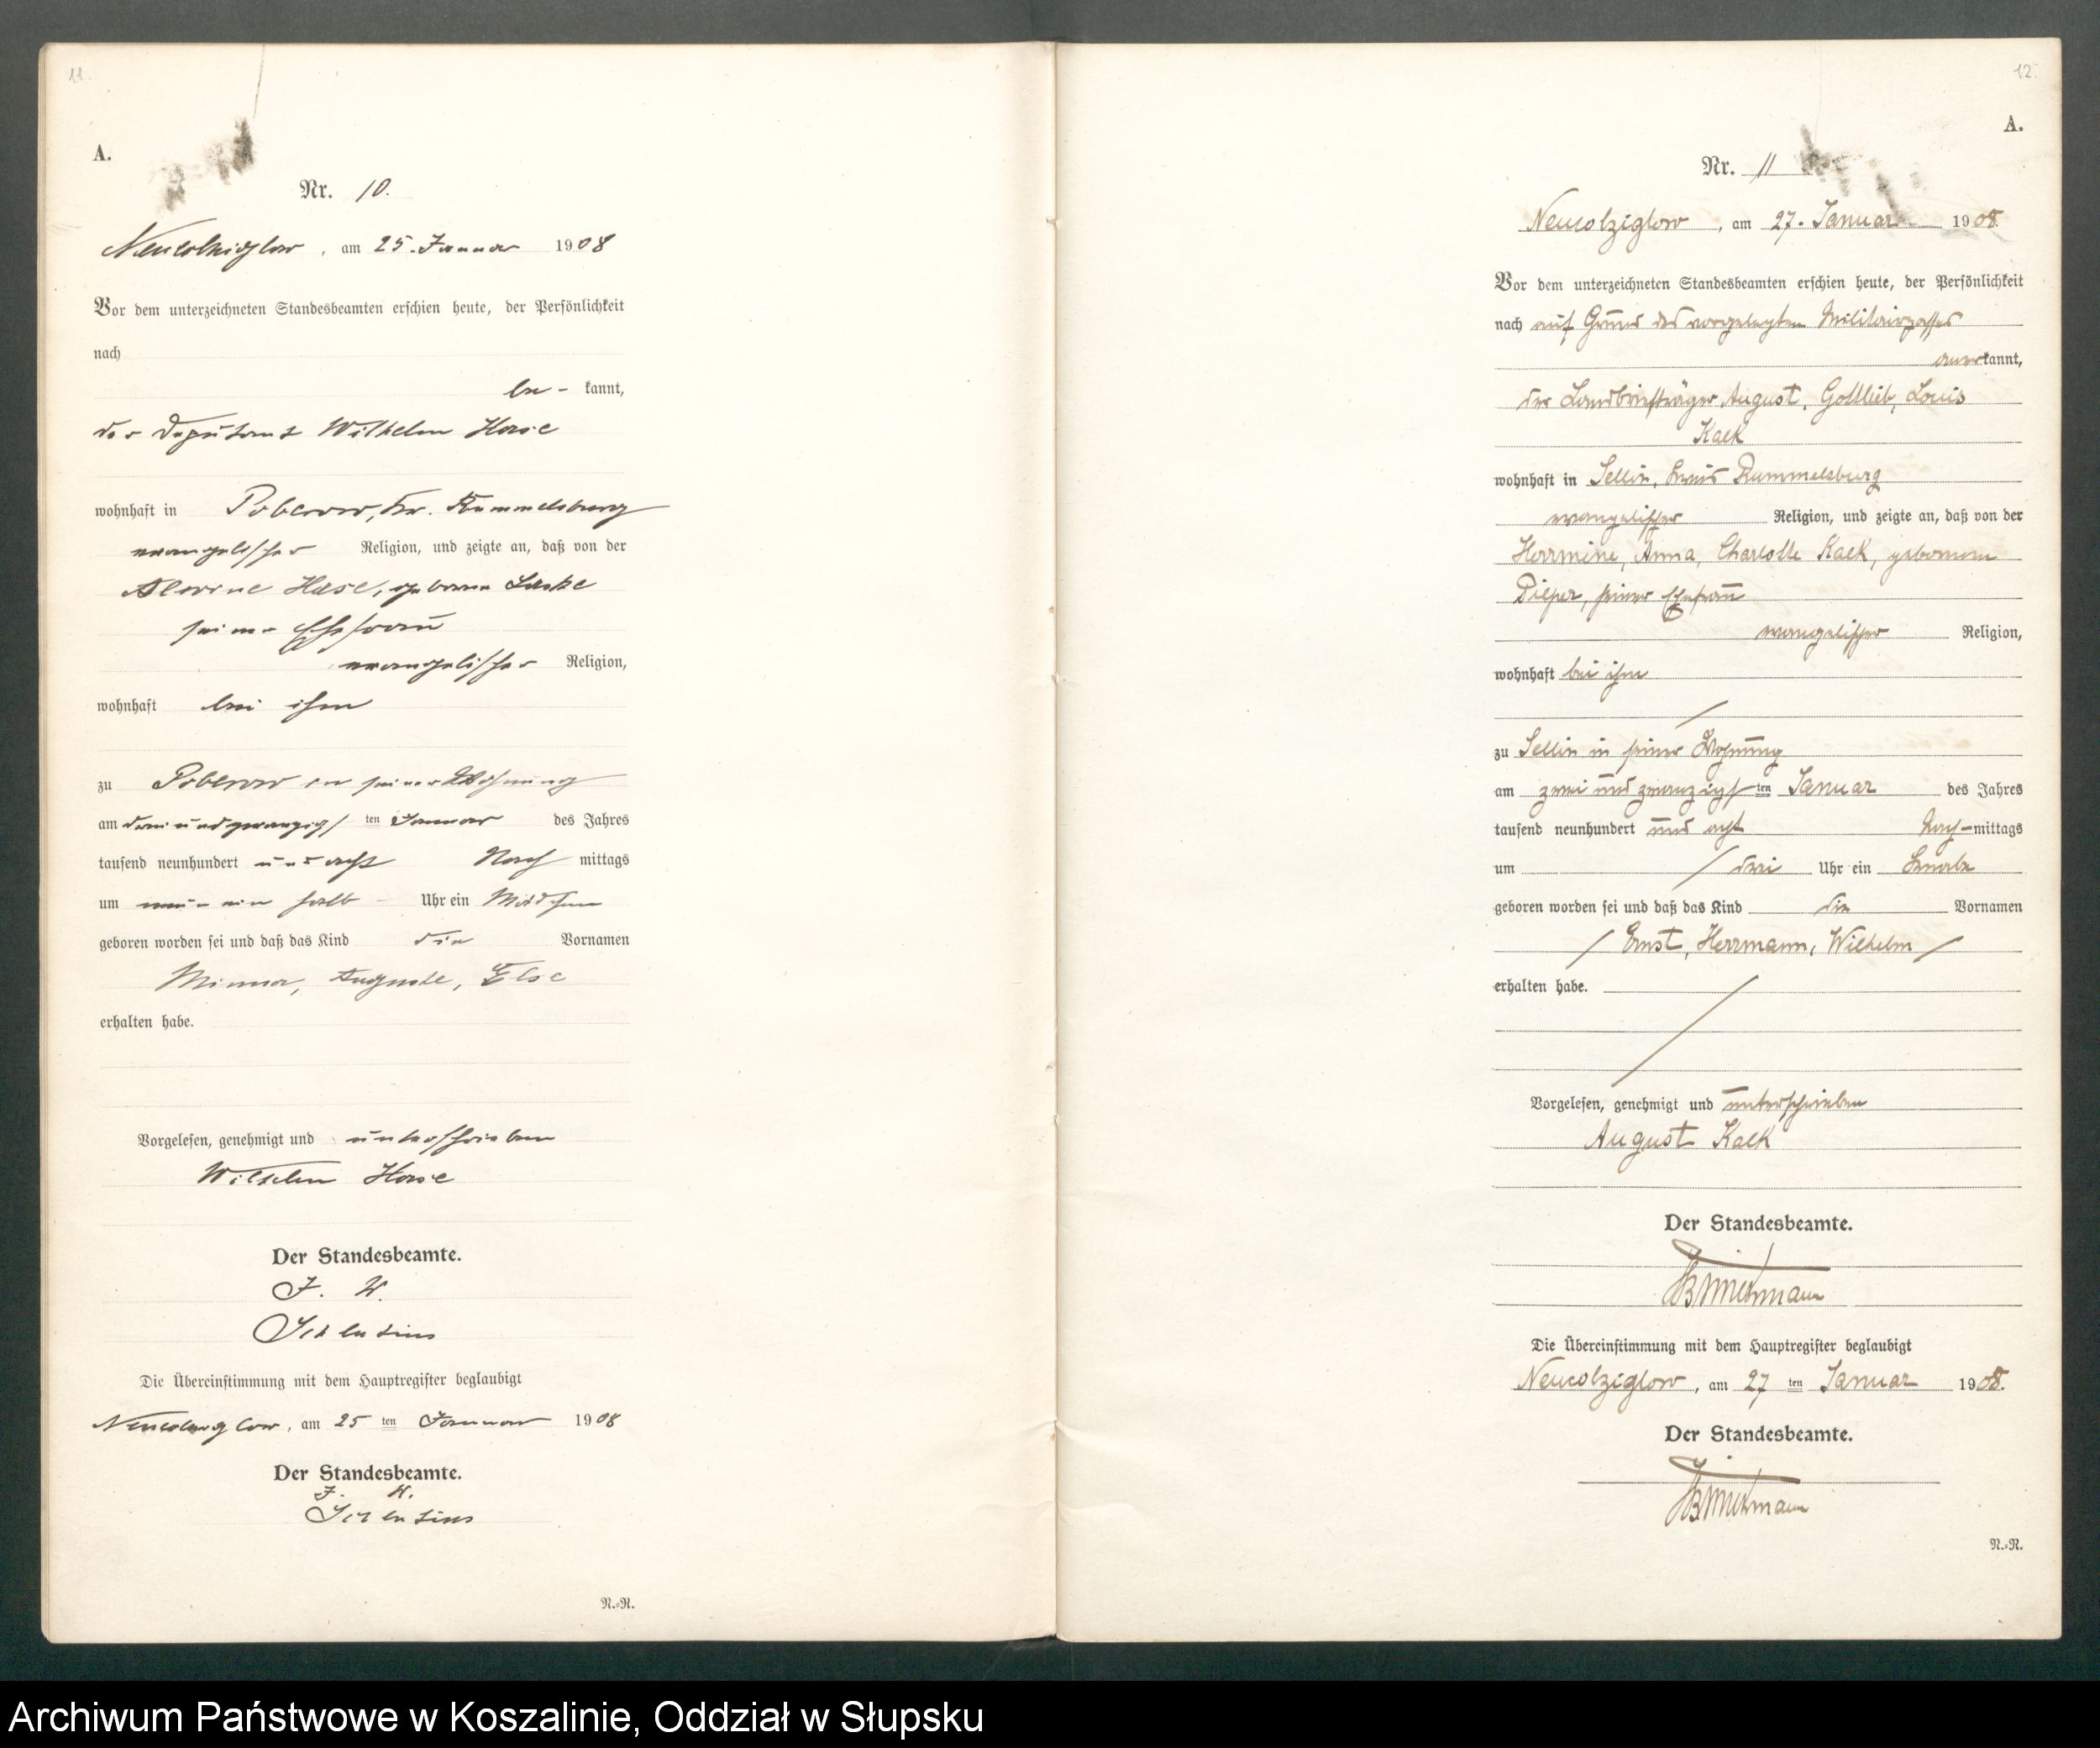 11.
A.
Nr. 10.
Neukolziglow, am 25. Januar 1908
Vor dem unterzeichneten Standesbeamten erschien heute, der Persönlichkeit
nach
be- kannt,
der Deputant Wilhelm Hase
wohnhaft in Poberow, Kr. Rummelsburg
evangelischer Religion, und zeigte an, daß von der
Hase, geborene
seiner Ehefrau
evangelischer Religion,
wohnhaft bei ihm
zu Poberow in seiner Wohnung
am drei und zwanzigsten Januar des Jahres
tausend neunhundert und acht Nach mittags
um neun ein halb Uhr ein Mädchen
geboren worden sei und daß das Kind die Vornamen
Minna, Auguste, Else
erhalten habe.
Vorgelesen, genehmigt und unterschrieben
Wilhelm Hase
Der Standesbeamte.
J. V.
Die Übereinstimmung mit dem Hauptregister beglaubigt
Neukolziglow, am 25 ten Januar 1908
Der Standesbeamte.
J. V.
N.=R.
12.
A.
Nr. 11
Neucolziglow, am 27. Januar 1908.
Vor dem unterzeichneten Standesbeamten erschien heute, der Persönlichkeit
nach auf Grund des vorgelegten Militairpasses
anerkannt,
der Landbriefträger August, Gottlieb, Louis
Kalk
wohnhaft in Sellin, Kreis Rummelsburg
evangelischer Religion, und zeigte an, daß von der
Herrmine, Anna, Charlotte Kalk, geborenen
Pieper, seiner Ehefrau
evangelischer Religion,
wohnhaft bei ihm
zu Sellin in seiner Wohnung
am zwei und zwanzigsten Januar des Jahres
tausend neunhundert und acht Nach-mittags
um drei Uhr ein Knabe
geboren worden sei und daß das Kind die Vornamen
Ernst, Herrmann, Wilhelm
erhalten habe.
Vorgelesen, genehmigt und unterschrieben
August Kalk
Der Standesbeamte.
Die Übereinstimmung mit dem Hauptregister beglaubigt
Neucolziglow, am 27 ten Januar 1908.
Der Standesbeamte.
N.=R.
Archiwum Państwowe w Koszalinie, Oddział w Słupsku